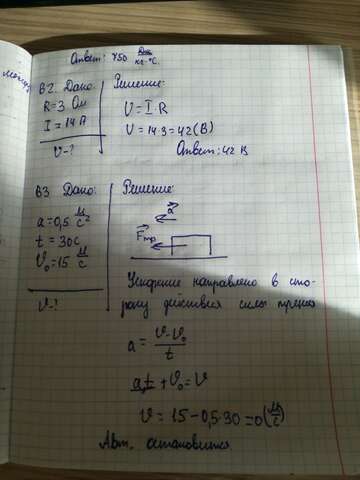 Ответ: 750 Дж/кг·°C.
В2. Дано:
R=3 Ом
I=14 А
U-?
Решение:
U=I·R
U=14·3=42(В)
Ответ: 42 В
В3 Дано:
a=0,5 м/с²
t=30с
v₀=15 м/с
v-?
Решение:
a
Fтр
Ускорение направлено в сто-
рону действия силы трения
a = v-v₀/t
a·t+v₀=v
v=15-0,5·30=0(м/с)
Авт. остановится